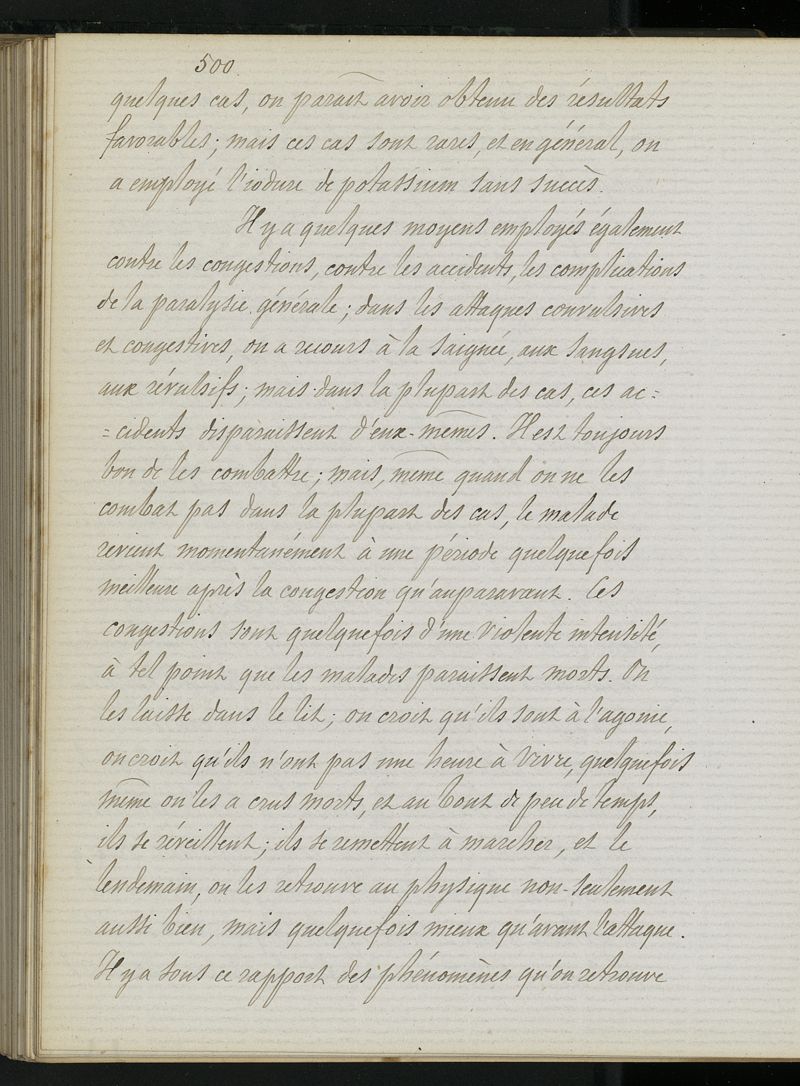 500
quelques cas, on paraît avoir obtenu des résultats
favorables; mais ces cas sont rares, et en général, on
a employé l'iodure de potassium sans succès.
Il y a quelques moyens employés également
contre les congestions, contre les accidents, les complications
de la paralysie générale; dans les attaques convulsives
et congestives, on a recours à la saignée, aux sangsues,
aux révulsifs; mais dans la plupart des cas, ces ac=
=cidents disparaissent d'eux-mêmes. Il est toujours
bon de les combattre; mais, même quand on ne les
combat pas dans la plupart des cas, le malade
revient momentanément à une période quelquefois
meilleure après la congestion qu'auparavant. Ces
congestions sont quelquefois d'une violente intensité,
à tel point que les malades paraissent morts. On
les laisse dans le lit; on croit qu'ils sont à l'agonie,
on croit qu'ils n'ont pas une heure à vivre, quelquefois
même on les a crus morts, et au bout de peu de temps,
ils se réveillent; ils se remettent à marcher, et le
lendemain, on les retrouve au physique non-seulement
aussi bien, mais quelquefois mieux qu'avant l'attaque.
Il y a sous ce rapport des phénomènes qu'on retrouve